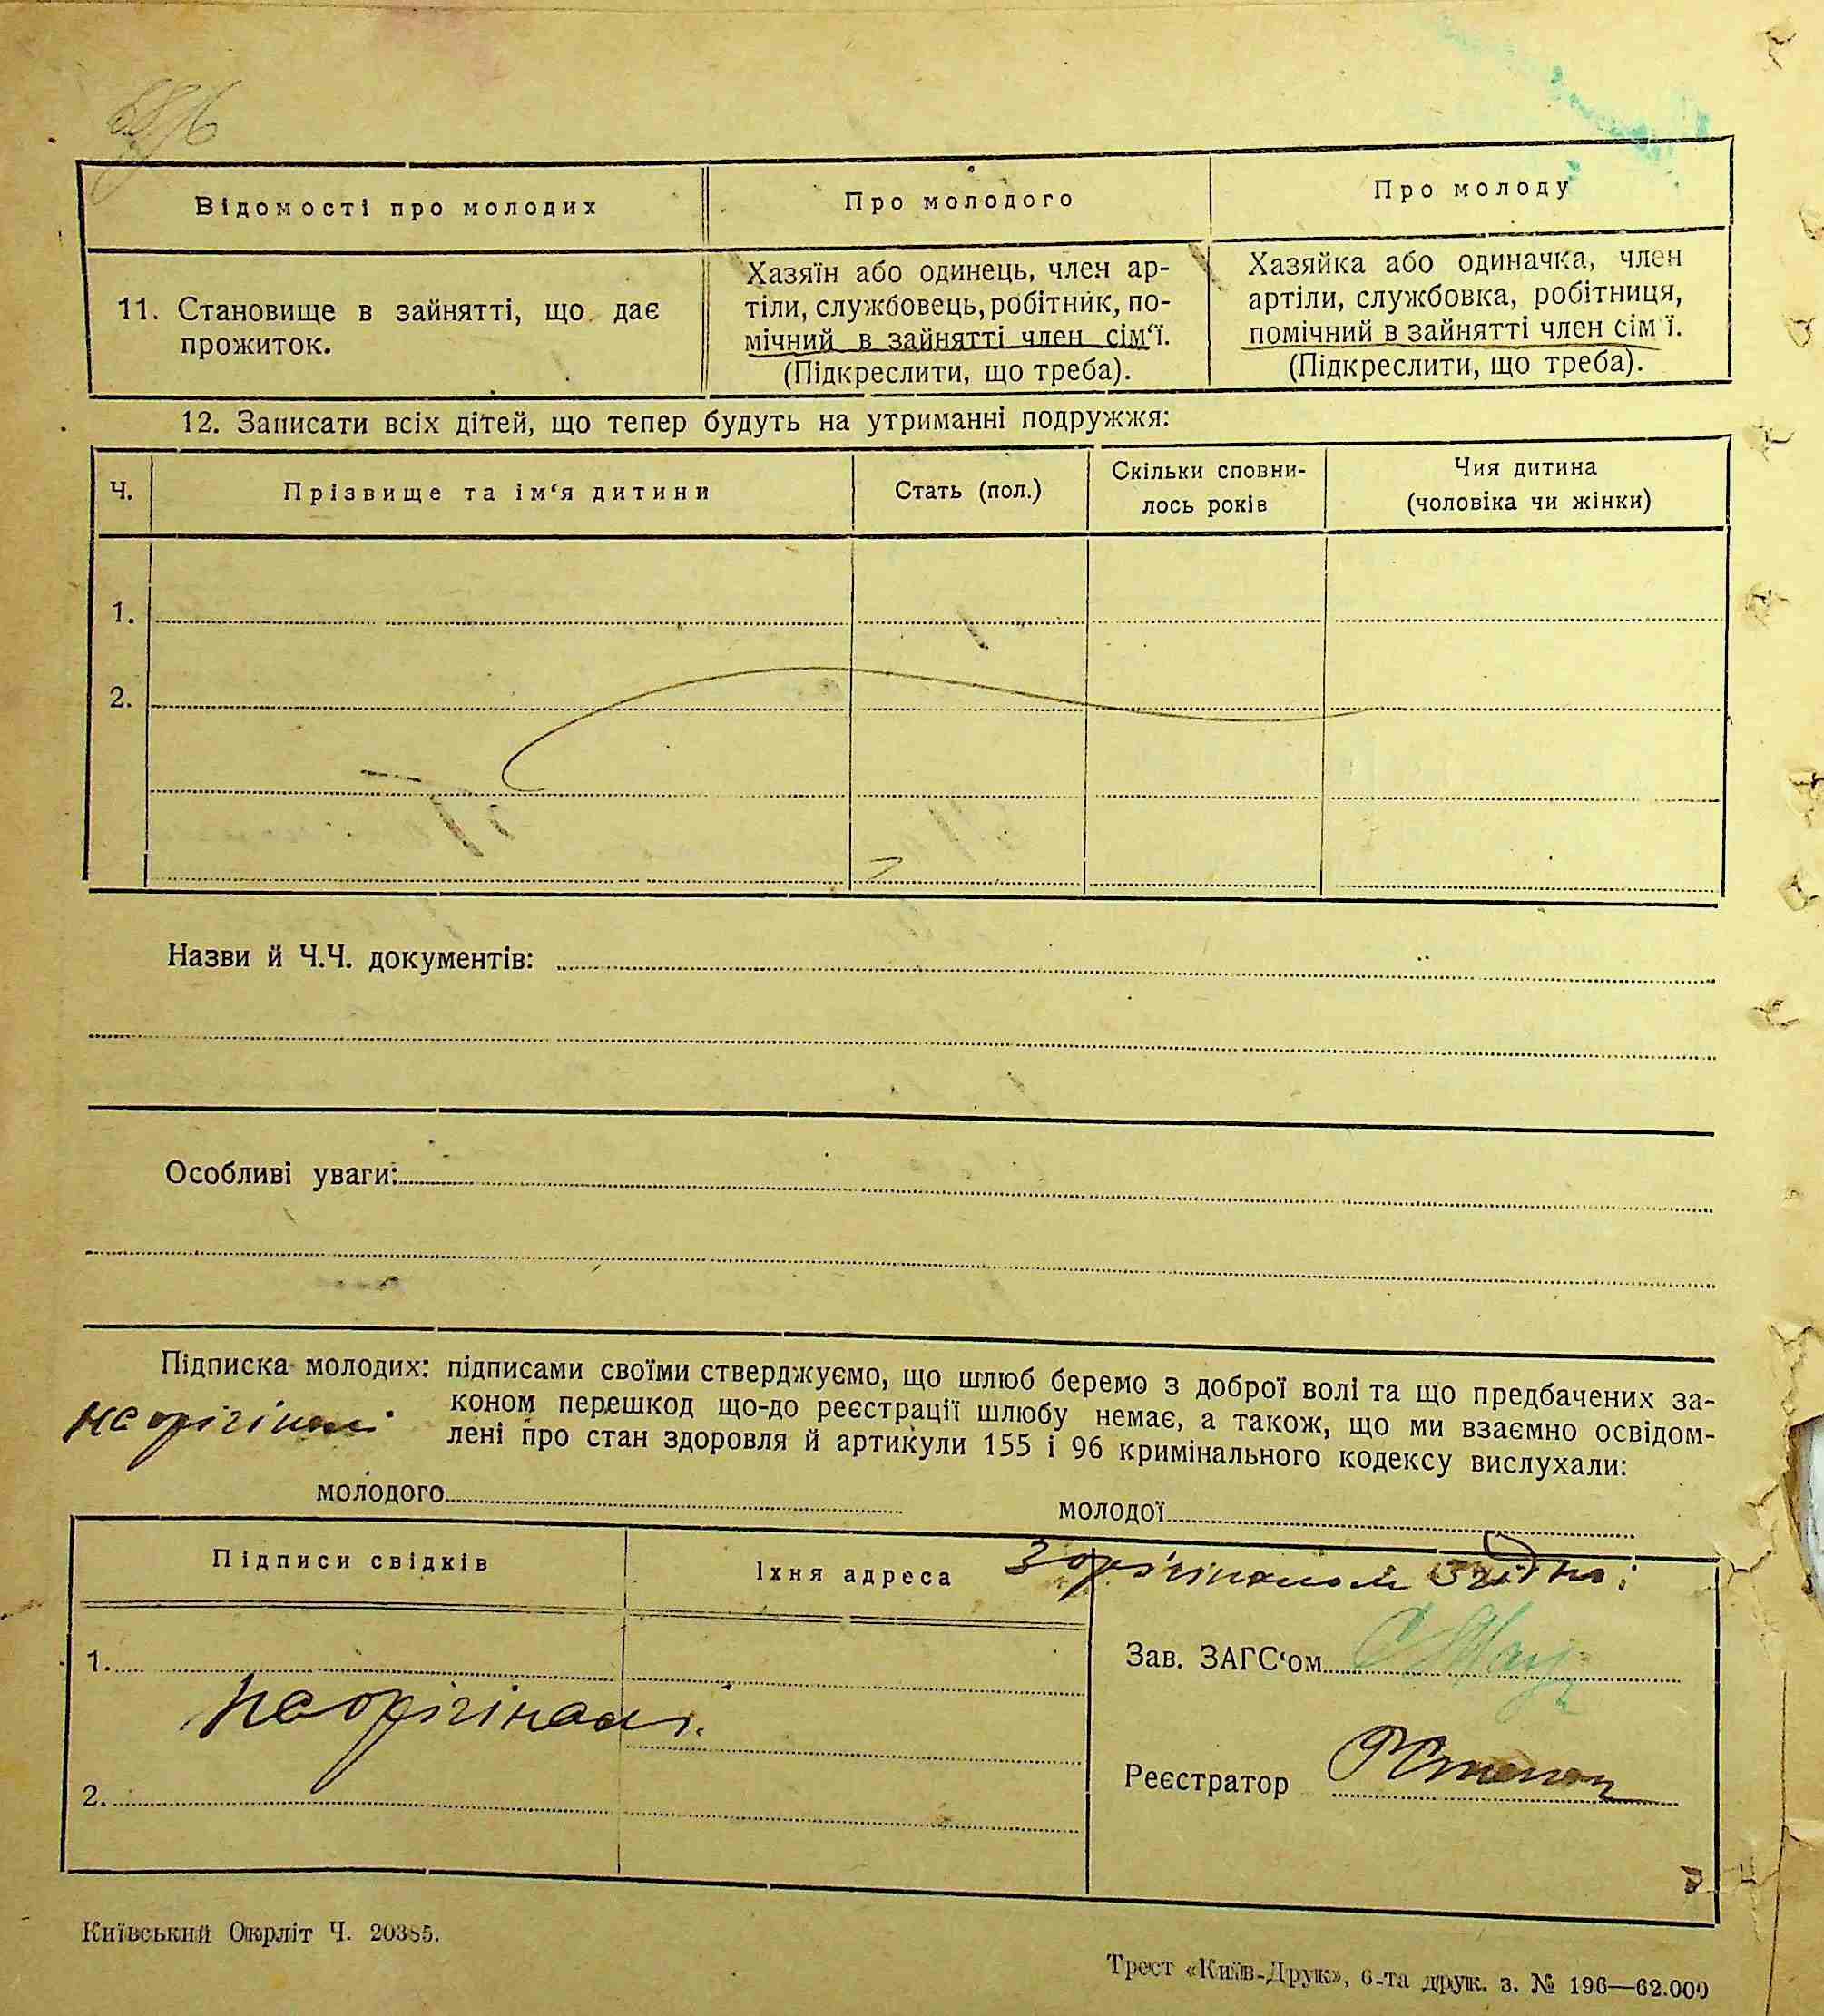 Відомості про молодих
Про молодого
Про молоду
11. Становище в зайнятті, що дає
прожиток.
Хазяїн або одинець, член ар-
тіли, службовець, робітник, по-
мічний в зайнятті член сім‘ї.
(Підкреслити, що треба).
Хазяйка або одиначка, член
артіли, службовка, робітниця,
помічний в зайнятті член сім ї.
(Підкреслити, що треба).
12. Записати всіх дітей, що тепер будуть на утриманні подружжя:
Ч.
Прізвище та ім‘я дитини
Стать (пол.)
Скільки сповни-
лось років
Чия дитина
(чоловіка чи жінки)
1.
2.
Назви й Ч.Ч. документів:
Особливі уваги:
Підписка молодих: підписами своїми стверджуємо, що шлюб беремо з доброї волі та що предбачених за-
коном перешкод що-до реєстрації шлюбу немає, а також, що ми взаємно освідом-
лені про стан здоровля й артикули 155 і 96 кримінального кодексу вислухали:
на оригіналі
молодого
молодої
Підписи свідків
Їхня адреса
З оригіналом згідно:
1.
на оригіналі.
2.
Зав. ЗАГС‘ом
Реєстратор
Київський Окрліт Ч. 20385.
Трест «Київ-Друк», 6-та друк. з. № 196—62.000